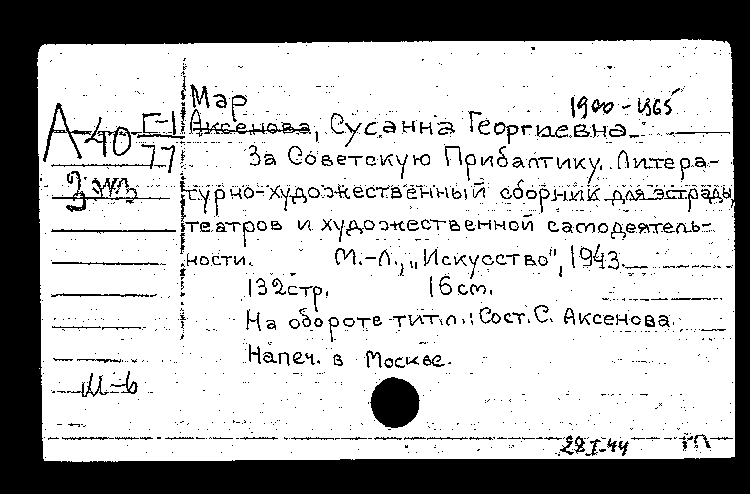 Мар
1900-1965
А-40 Г-1/77
Аксенова, Сусанна Георгиевна.
3 экз
За Советскую Прибалтику. Литера-
турно-художественный сборник для эстрады,
театров и художественной самодеятель-
ности. М.-Л., „Искусство", 1943.
132стр. 16см.
На обороте тит.л.: Сост. С. Аксенова.
Напеч. в Москве.
М-ь
28 I-44 ГП